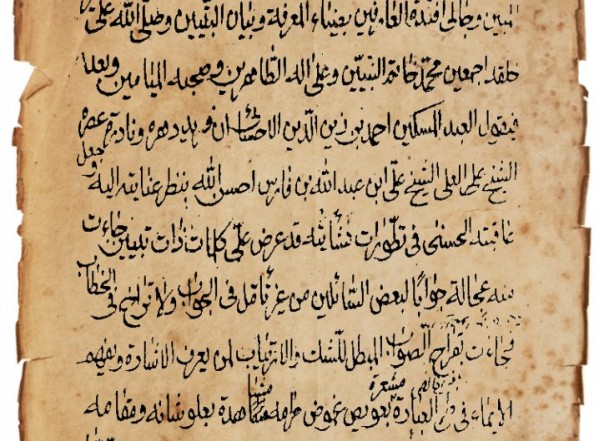 المبين وجالي افئدة العارفين بضياء المعرفة وبيان التبيين وصلى الله على خير
خلقه اجمعين محمد خاتم النبيين وعلى اله الطاهرين وصحبه الميامين وبعد
فيقول العبد المسكين احمد بن زين الدين الاحسائى ان وحيد دهره ونادرة عصره
الشيخ على العلى الشيخ على ابن عبد الله بن فارس احسن الله بنظر عنايته اليه وجعل
عاقبته الحسنى فى تطورات نشأيته قد عرض على كلمات ذات تبيين جاءت
منه عجالة جوابا لبعض السائلين من غير تأمل فى الجواب ولا تراجع فى الخطاب
فجاءت بقراح الصواب المبطل للشك والارتياب لمن يعرف الاشارة ويفهم
الايماء فى العبارة مشعرة بعويص غموض مرامه مشاهدة بعلو شانه ومقامه